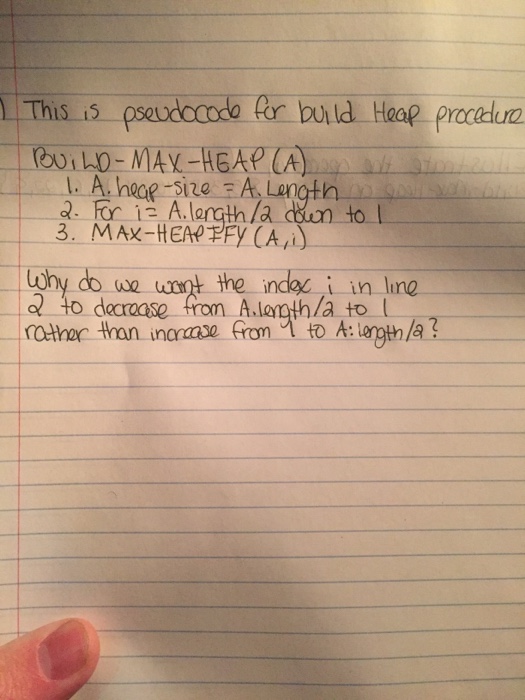 ) This is pseudocode for build Heap procedure
BUILD-MAX-HEAP (A)
1. A.heap-size = A.Length
2. For i= A.length/2 down to 1
3. MAX-HEAPIFY (A,i)
Why do we want the index i in line
2 to decrease from A.length/2 to 1
rather than increase from 1 to A:length/2?